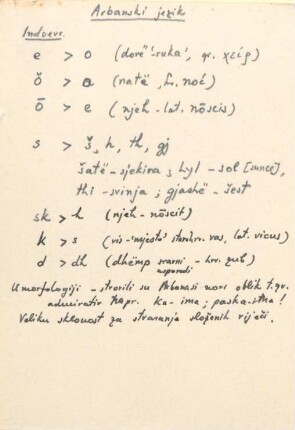 Arbanski jezik
Indoevr.
e > o (dorë 'ruka', gr. χείρ)
ŏ > a (natë, hr. noć)
ō > e (njeh - lat. nōscis)
s > š, h, th, gj
šatë - sjekira; hyl - sol [sunce],
thi - svinja; gjashë - šest
sk > h (njeh - nōscit)
k > s (vis - 'mjesto' starohrv. vas, lat. vicus)
d > dh (dhëmp sravni - hrv. zub)
usporedi
U morfologiji - stvorili su Arbanasi novi oblik t.zv.
admirativ npr. ka-ima; paska-itka!
Veliku sklonost za stvaranja složenih riječi.